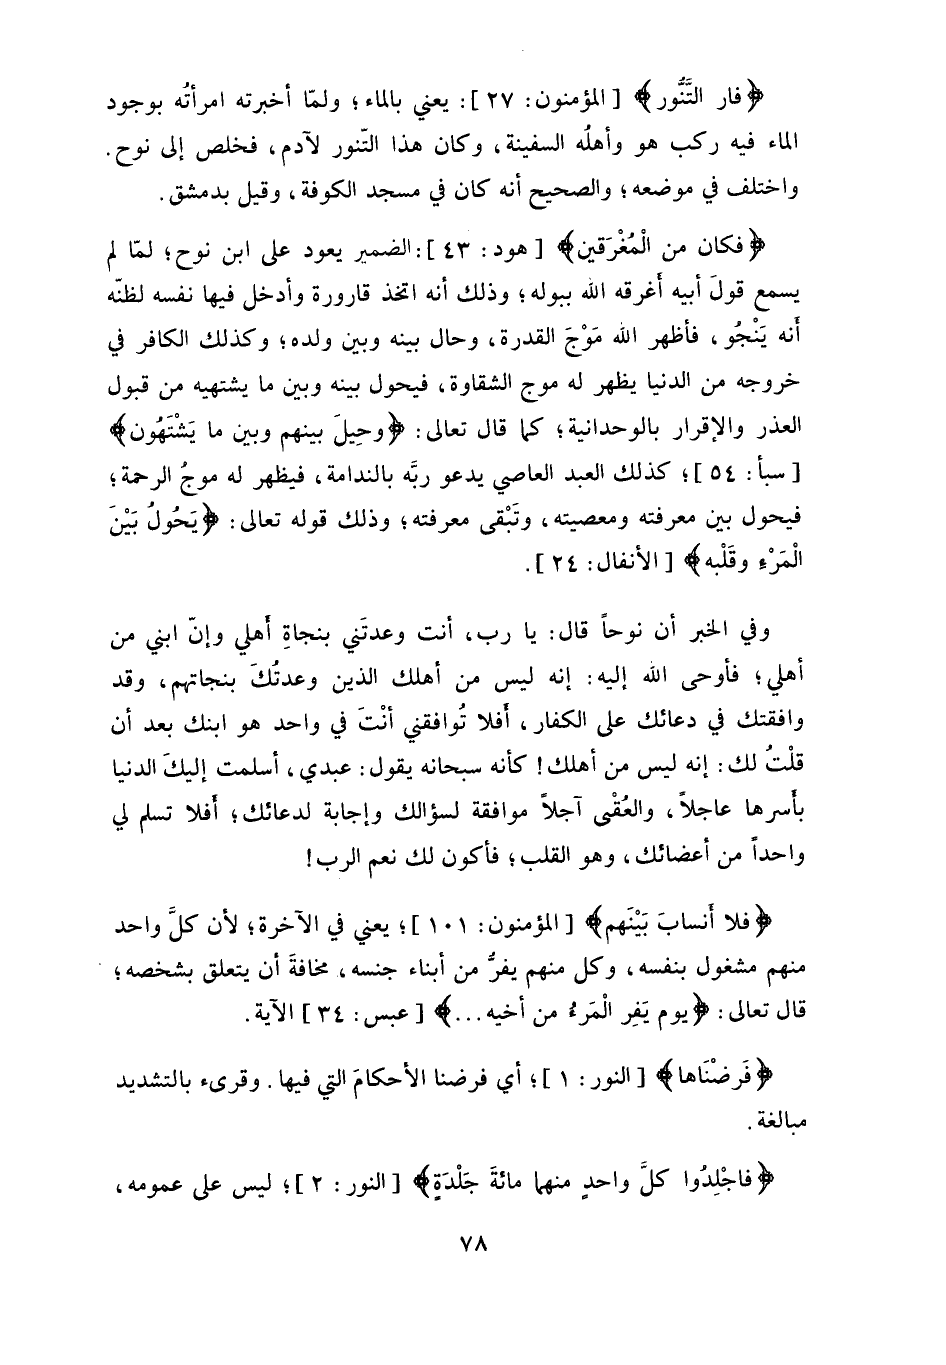 ﴿فار التَّنُّور﴾ [المؤمنون: ٢٧]: يعني بالماء؛ ولمّا أخبرته امرأتُه بوجود
الماء فيه ركب هو وأهلُه السفينة، وكان هذا التّنور لآدم، فخلص إلى نوح.
واختلف في موضعه؛ والصحيح أنه كان في مسجد الكوفة، وقيل بدمشق.
﴿فكان من الْمُغْرَقين﴾ [هود: ٤٣]: الضمير يعود على ابن نوح؛ لمّا لم
يسمع قولَ أبيه أغرقه الله ببوله؛ وذلك أنه اتخذ قارورة وأدخل فيها نفسه لظنّه
أنه يَنْجُو، فأظهر الله مَوْجَ القدرة، وحال بينه وبين ولده؛ وكذلك الكافر في
خروجه من الدنيا يظهر له موج الشقاوة، فيحول بينه وبين ما يشتهيه من قبول
العذر والإقرار بالوحدانية؛ كما قال تعالى: ﴿وحِيلَ بينهم وبين ما يَشْتَهُون﴾
[سبأ: ٥٤]؛ كذلك العبد العاصي يدعو ربَّه بالندامة، فيظهر له موجُ الرحمة؛
فيحول بين معرفته ومعصيته، وتَبْقى معرفته؛ وذلك قوله تعالى: ﴿يَحُولُ بَيْنَ
الْمَرْءِ وقَلْبه﴾ [الأنفال: ٢٤].
وفي الخبر أن نوحاً قال: يا رب، أنت وعدتَني بنجاةِ أَهلي وإنّ ابني من
أهلي؛ فأوحى الله إليه: إنه ليس من أهلك الذين وعدتُكَ بنجاتهم، وقد
وافقتك في دعائك على الكفار، أَفلا تُوافقني أنْتَ في واحد هو ابنك بعد أن
قلْتُ لك: إنه ليس من أهلك! كأنه سبحانه يقول: عبدي، أسلمت إليكَ الدنيا
بأَسرها عاجلاً، والعُقْبى آجلاً موافقة لسؤالك وإجابة لدعائك؛ أَفلا تسلم لي
واحداً من أعضائك، وهو القلب؛ فأكون لك نعم الرب!
﴿فلا أَنسابَ بَيْنَهم﴾ [المؤمنون: ١٠١]؛ يعني في الآخرة؛ لأن كلَّ واحد
منهم مشغول بنفسه، وكل منهم يفرُّ من أبناء جنسه، مخافةَ أن يتعلق بشخصه؛
قال تعالى: ﴿يوم يَفِر الْمَرءُ من أخيه...﴾ [عبس: ٣٤] الآية.
﴿فَرضْنَاها﴾ [النور: ١]؛ أي فرضنا الأحكامَ التي فيها. وقرىء بالتشديد
مبالغة.
﴿فاجْلِدُوا كلَّ واحدٍ منهما مائةَ جَلْدَةٍ﴾ [النور: ٢]؛ ليس على عمومه،
٧٨